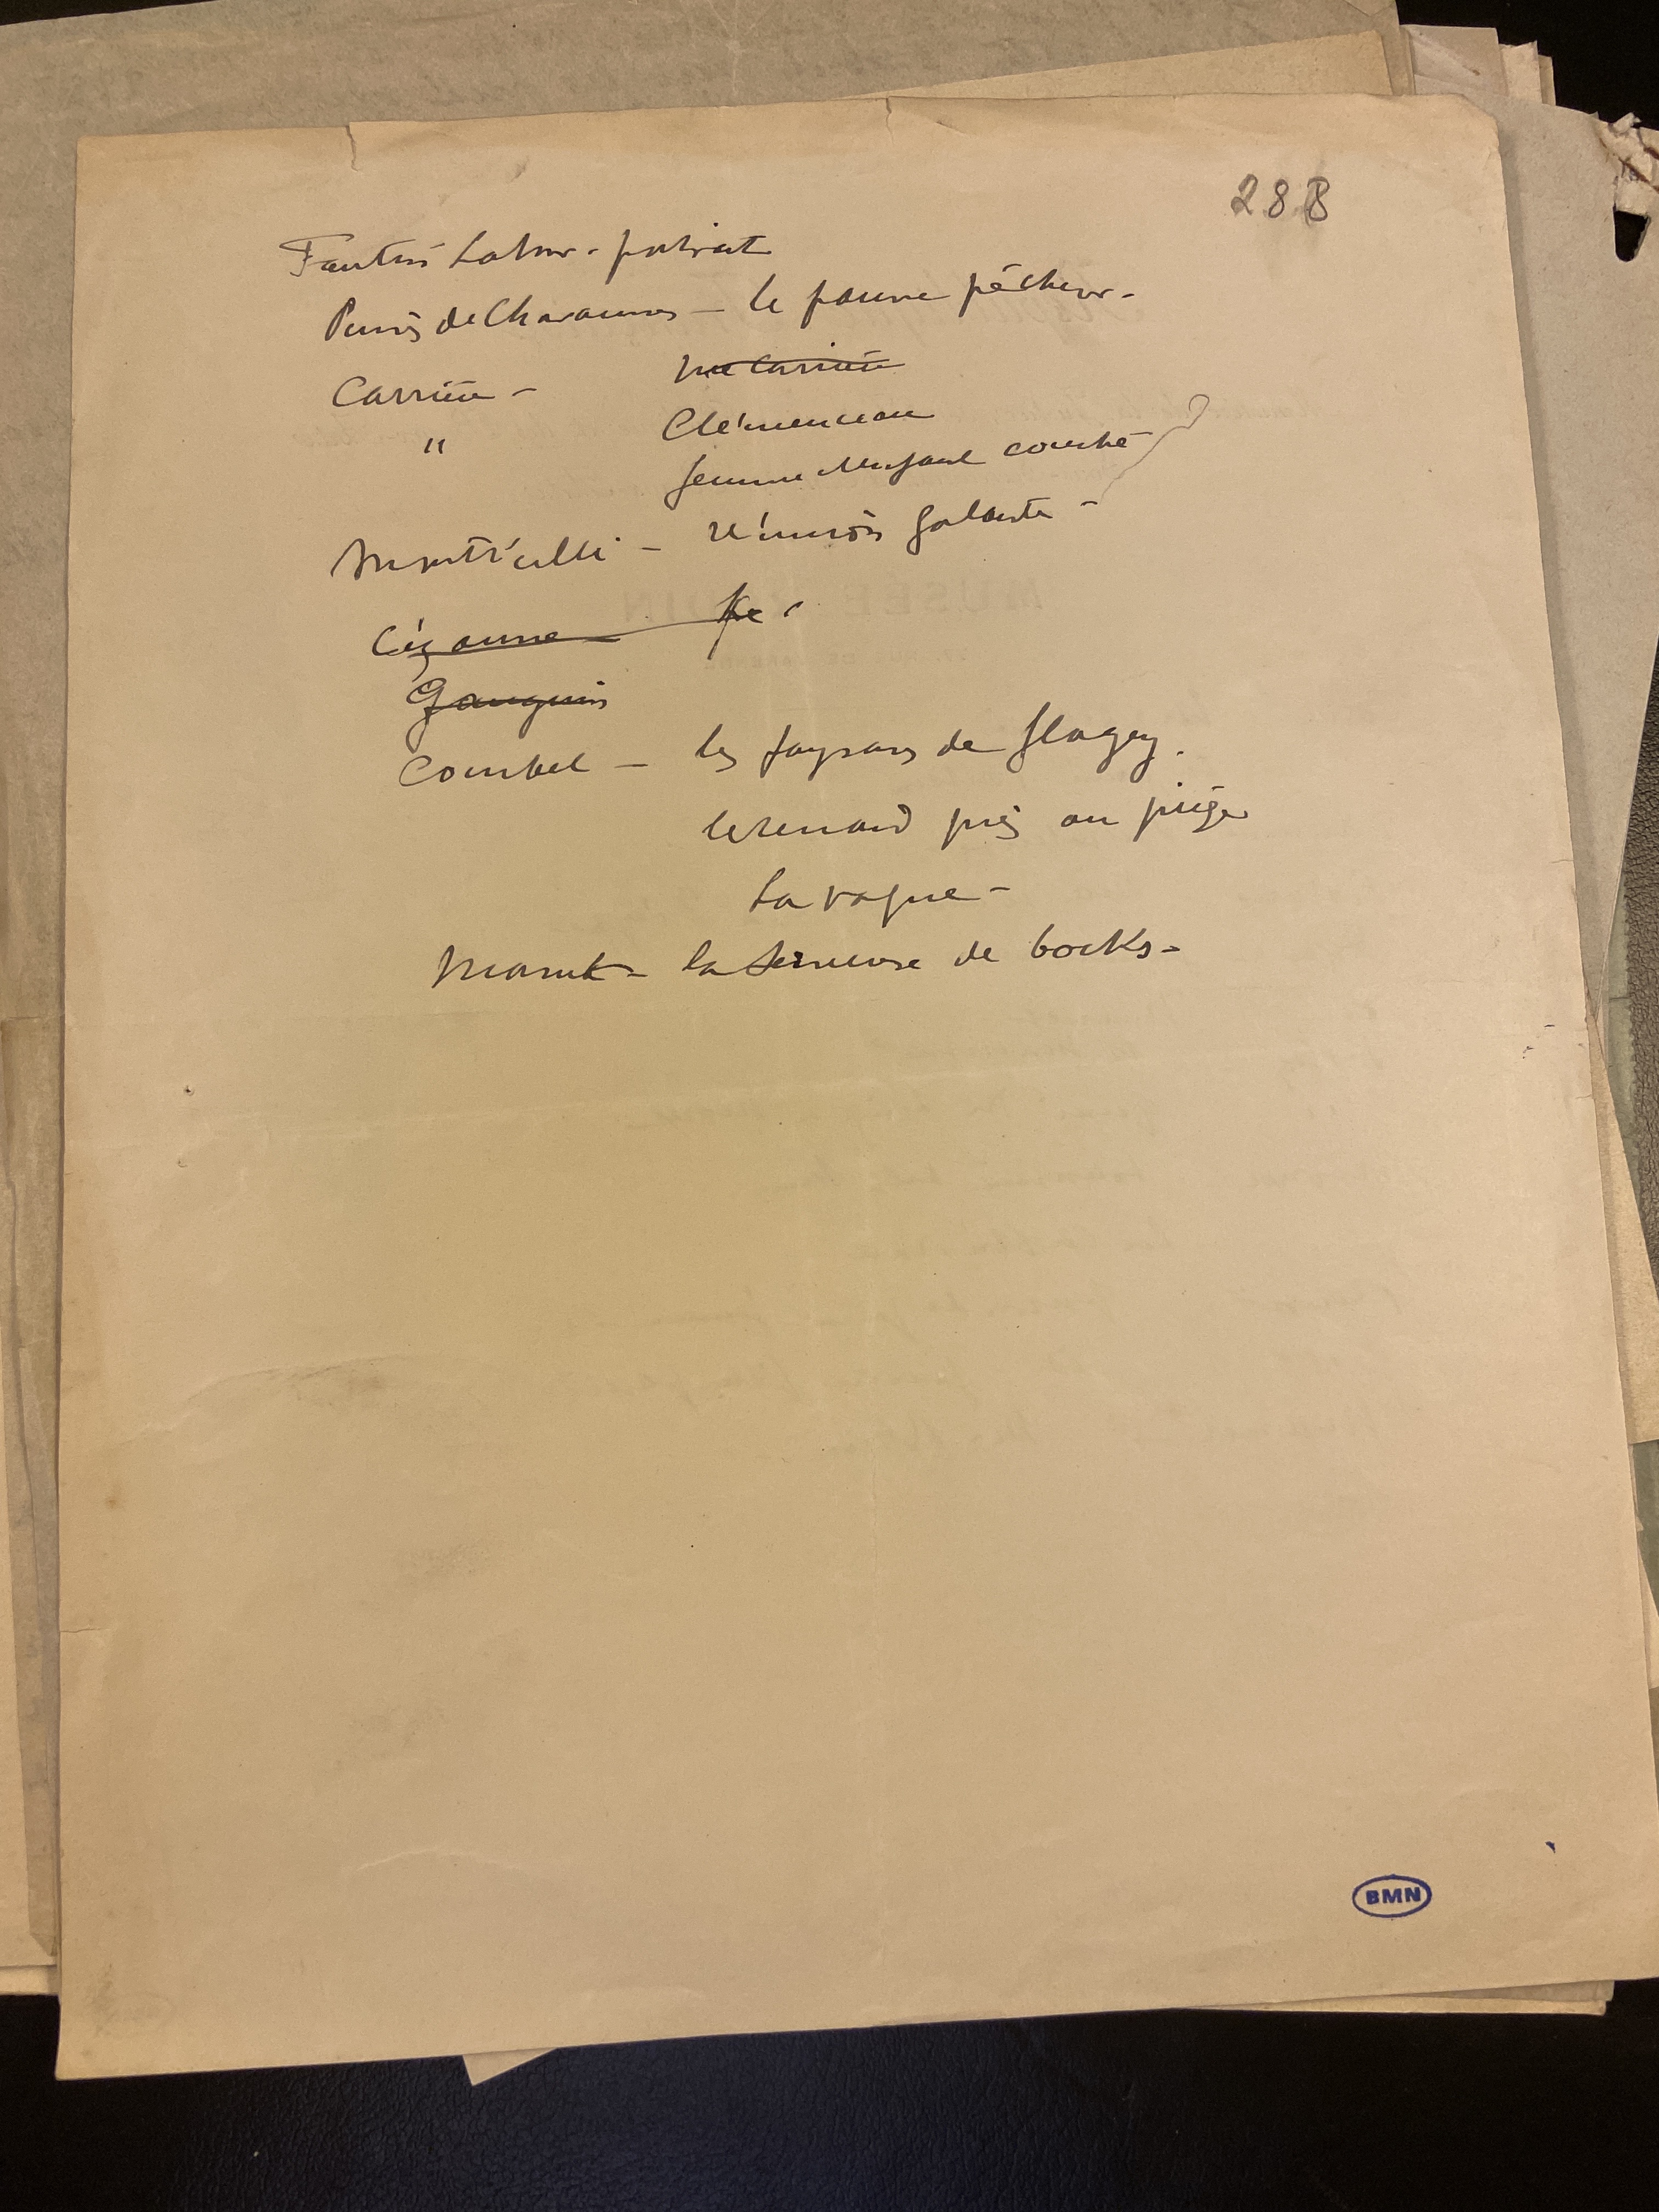 28B
Fantin Latour - portrait
Puvis de Chavannes - le pauvre pêcheur -
Carrière - Me Carrière
" Clémenceau
femme Enfant couché
Monticelli - réunion galante -
Cézanne
Gauguin
Courbet - les paysans de flagey.
le renard pris au piège
La vague -
Manet - la serveuse de bocks -
BMN